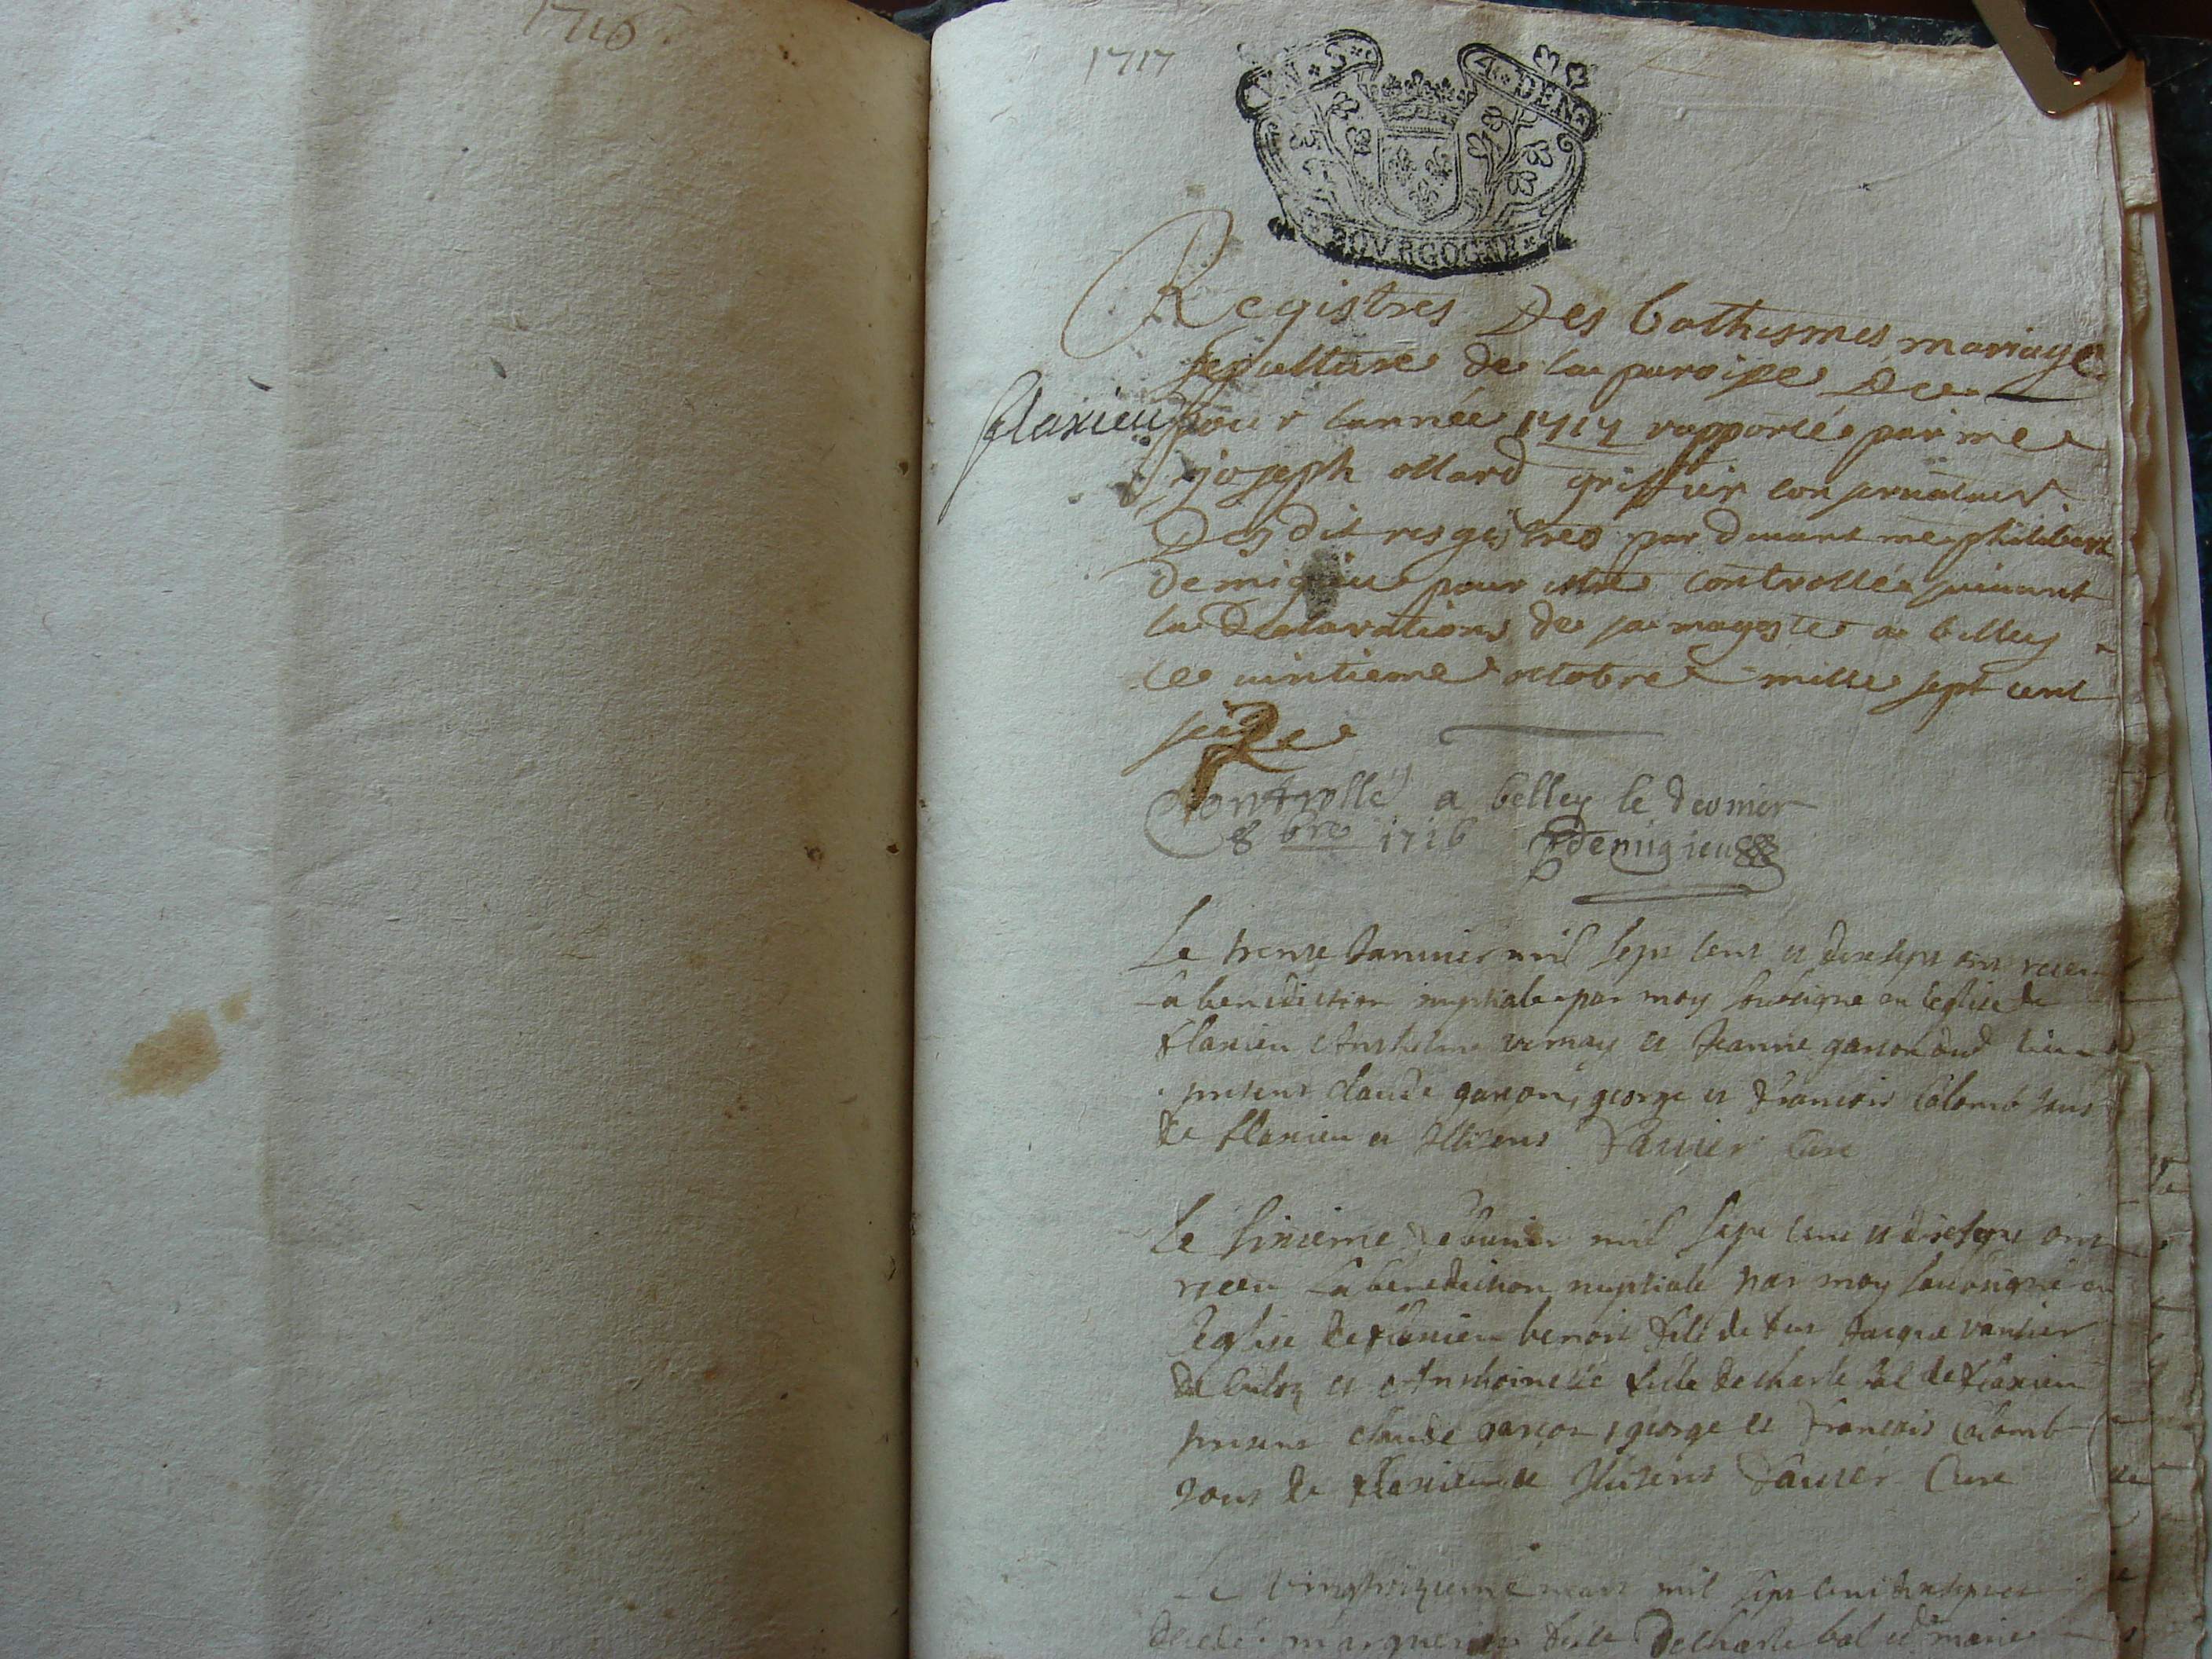 1716
1717
4 DEN
BOVRGOGNE
Registres Des bathismes mariage
sepulture de la paroisse De
flaxieu
pour lannée 1717 rapportée par me
joseph ollard griffier conservateur
Des dit resgistres par devant me philibert
demigieu pour estre controllée suivant
la Declarations de sa mageste a belley
le vintieme octobre mille sept cent
seize
Controllé a belley le dernier
8 bre 1716 Demigieu
Le trente Janvier mil sept cent et dixsept ont receu
la benediction nuptiale par moy soussigne en leglise de
flaxieu Anthelme vernay et Jeanne garson dud lieu
presens claude garson, george et francois Colomb tous
de flaxieu et Illiterés favier Cure
Le sixieme febvrier mil sept cent et dixsept ont
receu la benediction nuptiale par moy soussigné en
leglise de flaxieu benoit fils de feu Jacque vautier
de Culoz et Anthoinette fille de charle bal de flaxieu
presens claude garson, george et francois Colomb
tous de flaxieu et Illiterés favier Cure
Le vingt mars mil sept cent dixsept est
decedé marguerite fille De charle bal et de marie